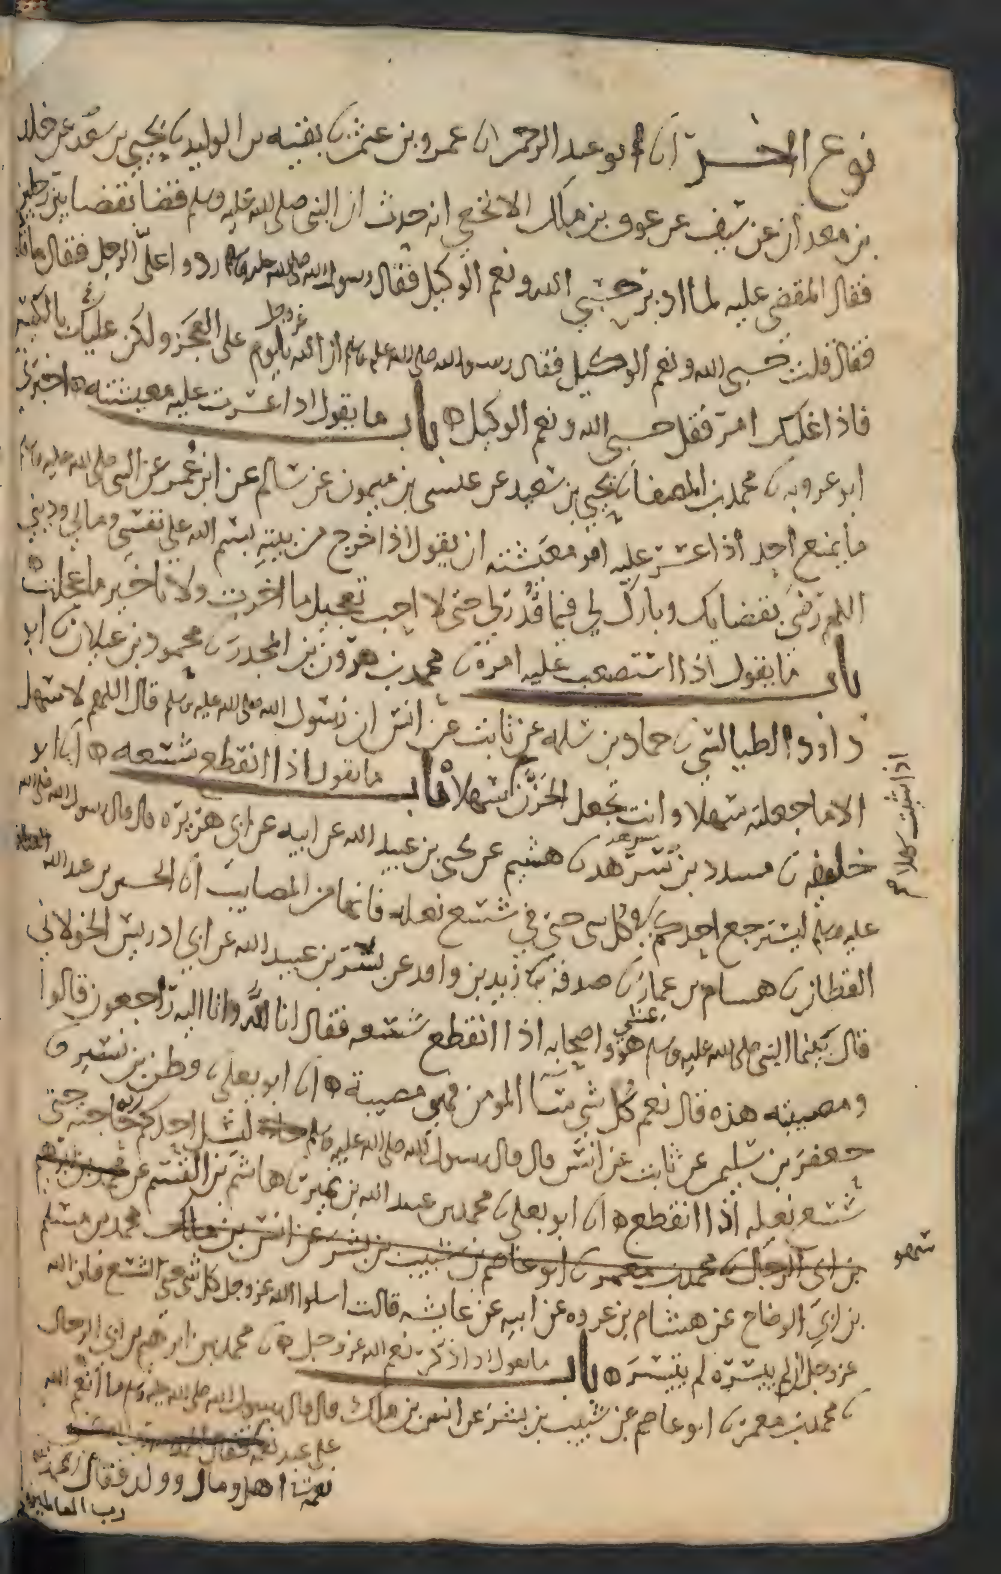 نوع اخر انا ابو عبد الرحمن انا عمرو بن عثمن ثنا بقيه بن الوليد ثنا يحيى بن سعد عن خلد
بن معدان عن سيف عن عوف بن ملك الاشجعي انه حدث ان النبي صلى الله عليه وسلم قضا بين رجلين
فقال المقضي عليه لما ادبر حسبي الله ونعم الوكيل فقال رسول الله صلى الله عليه وسلم ردوا علي الرجل فقال ما قلت
فقال قلت حسبي الله ونعم الوكيل فقال رسول الله صلى الله عليه وسلم ان الله عز وجل يلوم على العجز ولكن عليك بالكيس
فاذا غلبك امر فقل حسبي الله ونعم الوكيل ه باب ما يقول اذا عسرت عليه معيشته ه اخبرني
ابو عروبه ثنا محمد بن المصفا ثنا يحيى بن سعيد عن عيسى بن ميمون عن سالم عن ابن عمر عن النبي صلى الله عليه وسلم
ما يمنع احدكم اذا عسر عليه امر معيشته ان يقول اذا خرج من بيته بسم الله على نفسي ومالي وديني
اللهم رضني بقضايك وبارك لي فيما قدر لي حتى لا احب تعجيل ما اخرت ولا تاخير ما عجلت ه
باب ما يقول اذا استصعب عليه امره ثنا محمد بن هرون بن المجدر ثنا محمود بن غيلان ثنا ابو
داود الطيالسي ثنا حماد بن سلمه عن ثابت عن انس ان رسول الله صلى الله عليه وسلم قال اللهم لا سهل
الا ما جعلته سهلا وانت تجعل الحزن سهلا ه باب ما يقول اذا انقطع شسعه ه انا ابو
خليفه ثنا مسدد بن مسرهد ثنا هشيم عن يحيى بن عبيد الله عن ابيه عن ابي هريره قال قال رسول الله صلى الله
عليه وسلم ليسترجع احدكم في كل شي حتى في شسع نعله فانها من المصايب انا الحسين بن عبد الله
القطان ثنا هشام بن عمار ثنا صدقه ثنا زيد بن واقد عن بسر بن عبيد الله عن ابي ادريس الخولاني
قال بينما النبي صلى الله عليه وسلم يمشي هو واصحابه اذا انقطع شسعه فقال انا لله وانا اليه راجعون قالوا
ومصيبته هذه قال نعم كل شي ساء المومن فهي مصيبة ه انا ابو يعلى ثنا قطن بن نسير ثنا
جعفر بن سليمن عن ثابت عن انس قال قال رسول الله صلى الله عليه وسلم ليسل احدكم ربه حاجته حتى
شسع نعله اذا انقطع ه انا ابو يعلى ثنا محمد بن عبد الله بن نمير ثنا هاشم بن القسم عن محمد بن ابرهيم
بن ابي الرجال ثنا محمد بن معمر ثنا ابو عاصم عن شبيب بن بشر عن انس بن مالك محمد بن مسلم
بن ابي الوضاح عن هشام بن عروه عن ابيه عن عايشه قالت اسلوا الله عز وجل كل شي حتى الشسع فان الله
عز وجل ان لم ييسره لم يتيسر ه باب ما يقول اذا ذكر نعم الله عز وجل ه ثنا محمد بن ابرهيم بن ابي الرجال
ثنا محمد بن معمر ثنا ابو عاصم عن شبيب بن بشر عن انس بن مالك قال قال رسول الله صلى الله عليه وسلم ما انعم الله
على عبد نعمه
نعمة اهل ومال وولد فقال الحمد لله
رب العالمين